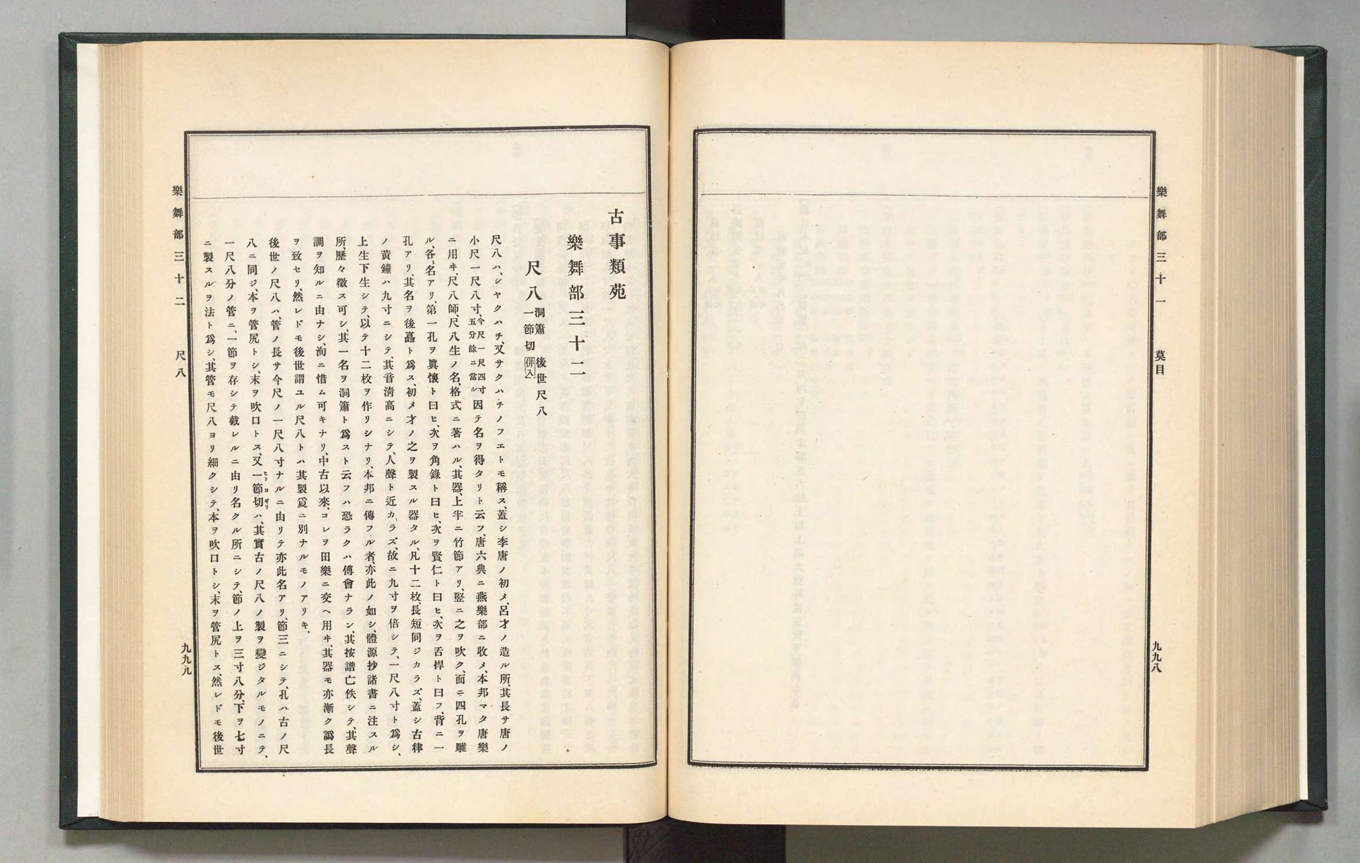 樂舞部三十一 莫目
九九八
古事類苑
樂舞部三十二
尺八 洞簫 後世尺八
一節切 併入
尺八ハ、シヤクハチ、又サクハチノフエトモ稱ス、蓋シ李唐ノ初メ、呂才ノ造ル所、其長サ唐ノ
小尺一尺八寸、今尺一尺四寸五分餘ニ當ル因テ名ヲ得タリト云フ、唐六典ニ燕樂部ニ收メ、本邦マタ唐樂
ニ用ヰ、尺八師、尺八生ノ名、格式ニ著ハル、其器上半ニ竹節アリ、竪ニ之ヲ吹ク、面ニ四孔ヲ雕
ル、各、名アリ、第一孔ヲ眞懷ト曰ヒ、次ヲ角錄ト曰ヒ、次ヲ賢仁ト曰ヒ、次ヲ舌捍ト曰フ、背ニ一
孔アリ、其名ヲ後囍ト爲ス、初メ才ノ之ヲ製スル器タル凡十二枚、長短同ジカラズ、蓋シ古律
ノ黃鐘ハ九寸ニシテ、其音淸高ニシテ、人聲ト近カラズ、故ニ九寸ヲ倍シテ、一尺八寸ト爲シ、
上生下生シテ、以テ十二枚ヲ作リシナリ、本邦ニ傳フル者亦此ノ如シ、體源抄諸書ニ注スル
所、歷々徵ス可シ、其一名ヲ洞簫ト爲スト云フハ恐ラクハ傅會ナラン、其按譜亡佚シテ、其聲
調ヲ知ルニ由ナシ、洵ニ惜ム可キナリ、中古以來、コレヲ田樂ニ交ヘ用ヰ、其器モ亦漸ク譌長
ヲ致セリ、然レドモ後世謂ユル尺八トハ其製寔ニ別ナルモノアリキ、
後世ノ尺八ハ、管ノ長サ今尺ノ一尺八寸ナルニ由リテ亦此名アリ、節三ニシテ、孔ハ古ノ尺
八ニ同ジ、本ヲ管尻トシ、末ヲ吹口トス、又一節切ハ、其實古ノ尺八ノ製ヲ變ジタルモノニテ、
一尺八分ノ管ニ、一節ヲ存シテ截レルニ由リ名クル所ニシテ、節ノ上ヲ三寸八分、下ヲ七寸
ニ製スルヲ法ト爲シ、其管モ尺八ヨリ細クシテ、本ヲ吹口トシ、末ヲ管尻トス、然レドモ後世
樂舞部三十二 尺八
九九九